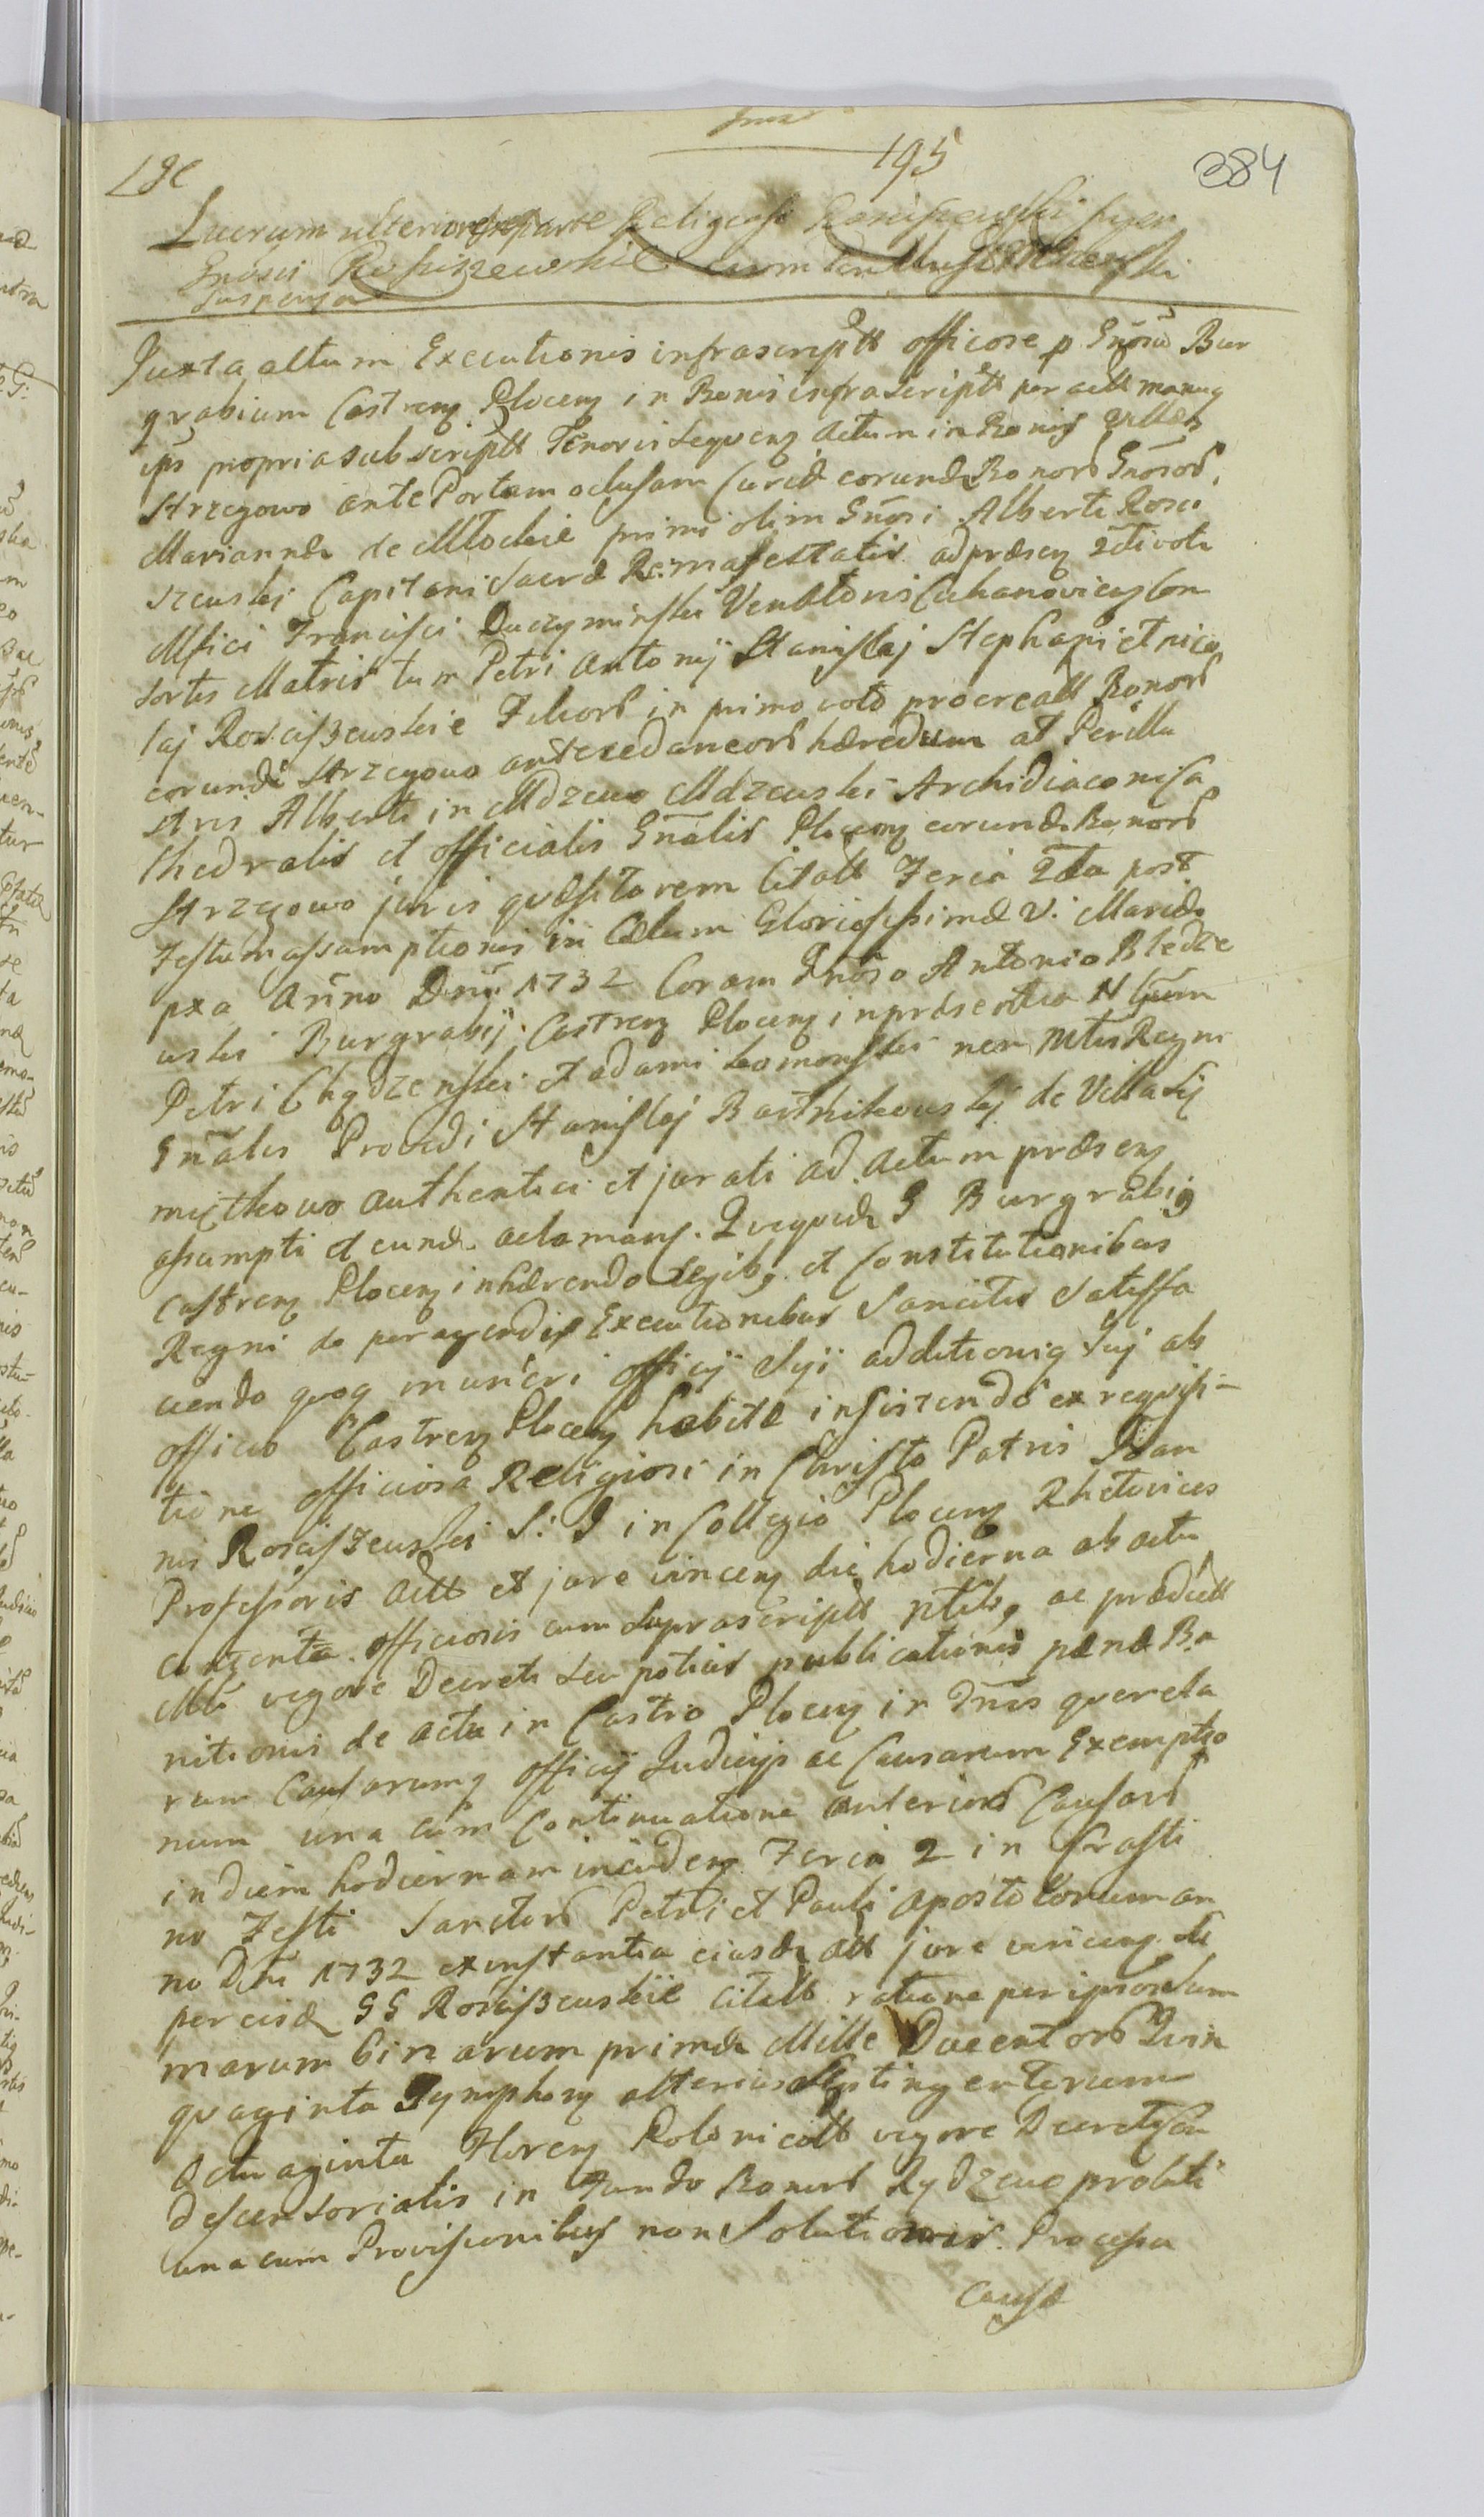 195
384
Lucrum ulterius ex parte Religiosi Rościszewski super
Gnosis Rościszewskie cum
suspensa
Juxta altum Executionis infrascriptt officose p Gnosũ Bur
grabium Castren Plocen in Bonis infrascriptt peractt manuq
ips propria subscriptt Tenoris sequen Actum in Bonis Villæ
Strzegowo ante Portam oclusam Curiæ eorundæ Bonorũ Gnosorũ
Mariannæ de Młockie primi olim Gnosi Alberti Rosci
szewski Capitani Sacræ Ræ: Majestatis ad præsen 2di voti
Mfici Francisci Duczyminski Venatonis Ciechanovien Con
sortis Matris tum Petri Antonij Stanislaj Stephani et Nico
laj Rosciszewskie Filiorũ in primo voto procreatt Bonorũ
eorundæ Strzegowo antecedaneorũ hæredum at Perillu
stris Alberti in Mdzewo Mdzewski Archidiaconi Ca
thedralis et officialis Gnalis Plocen eorundæ Bonorũ
Strzegowo juris quæsitorem Citatt Feria 2da post
Festum assumptionis in Cælum Gloriosissimæ V: Mariæ
pxa Anno Dni 1732 Coram Gnoso Antonio Bledze
wski Burgrabij Castren Plocen in præsentia Nlium
Petri Chądzenski et Adami Łomonski nen Mtus Regni
Gnalis Providi Stanislaj Bartnikowskj de Villa Sy
miątkowo authentici et jurati ad Actum præsen
assumpti et eundæ aclaman. Quiquidæ G Burgrabiq
Castren Plocen inhærendo Legibq et Constitutionibus
Regni de peragendis Executionibus Sancitis Satisfa
ciendo quoq muneri officij Sui additioniq Suj ab
officio Castren Plocen habitæ insistendo ex requisi-
tione officiosa Religiosi in Christo Patris Joan
nis Rosciszewski S: J in Collegio Plocen Rhetorices
Professoris actt et jure vincen die hodierna ab actu
contenta officiosis cum Suprascriptt ntibq ac prædictt
Mtri vigore Decreti seu potius publicationis pænæ Ba
nitionis de actu in Castro Plocen in Dnis querela
rum Causarumq officij Judicijs ac Causarum Exemptio
num una cum Continuatione anteriorũ Causarũ
in diem hodiernam inciden Feria 2 in Crasti
no Festi Sanctorũ Petri et Pauli Apostolorum an
no Dni 1732 ex instantia eiusdæ Actt jure vincen
per eisdæ GG Rosciszewskie citatt ratione per ipsos Sum
marum binarum primæ Mille Ducentorũ Quin
quaginta Tymphon alterius Septingentorum
Octuaginta Floren Polonicalt vigore Decreti Con
descensorialis in Fundo Bonorũ Rydzewo probati
una cum Provisionibus non Solutionis. Processu
Causæ